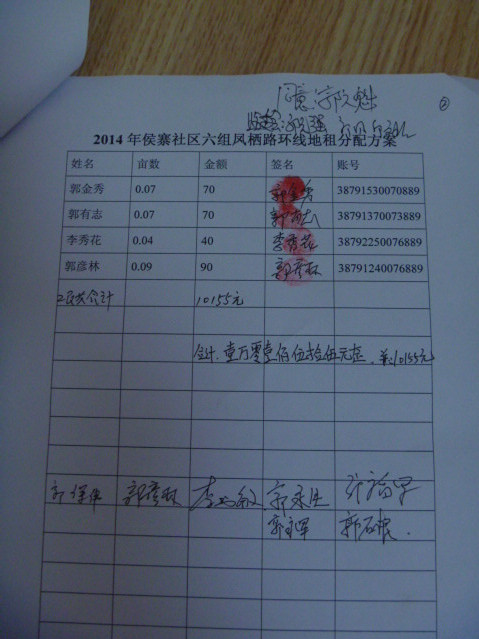 同意:郭久魁
②
监委会:
2014年侯寨社区六组凤栖路环线地租分配方案
姓名 亩数 金额 签名 账号
郭金秀 0.07 70 郭金秀 38791530070889
郭有志 0.07 70 郭有志 38791370073889
李秀花 0.04 40 李秀花 38792250076889
郭彦林 0.09 90 郭彦林 38791240076889
2页共合计 10155元
合计:壹万零壹佰伍拾伍元整. 羊:10155元
郭彦林